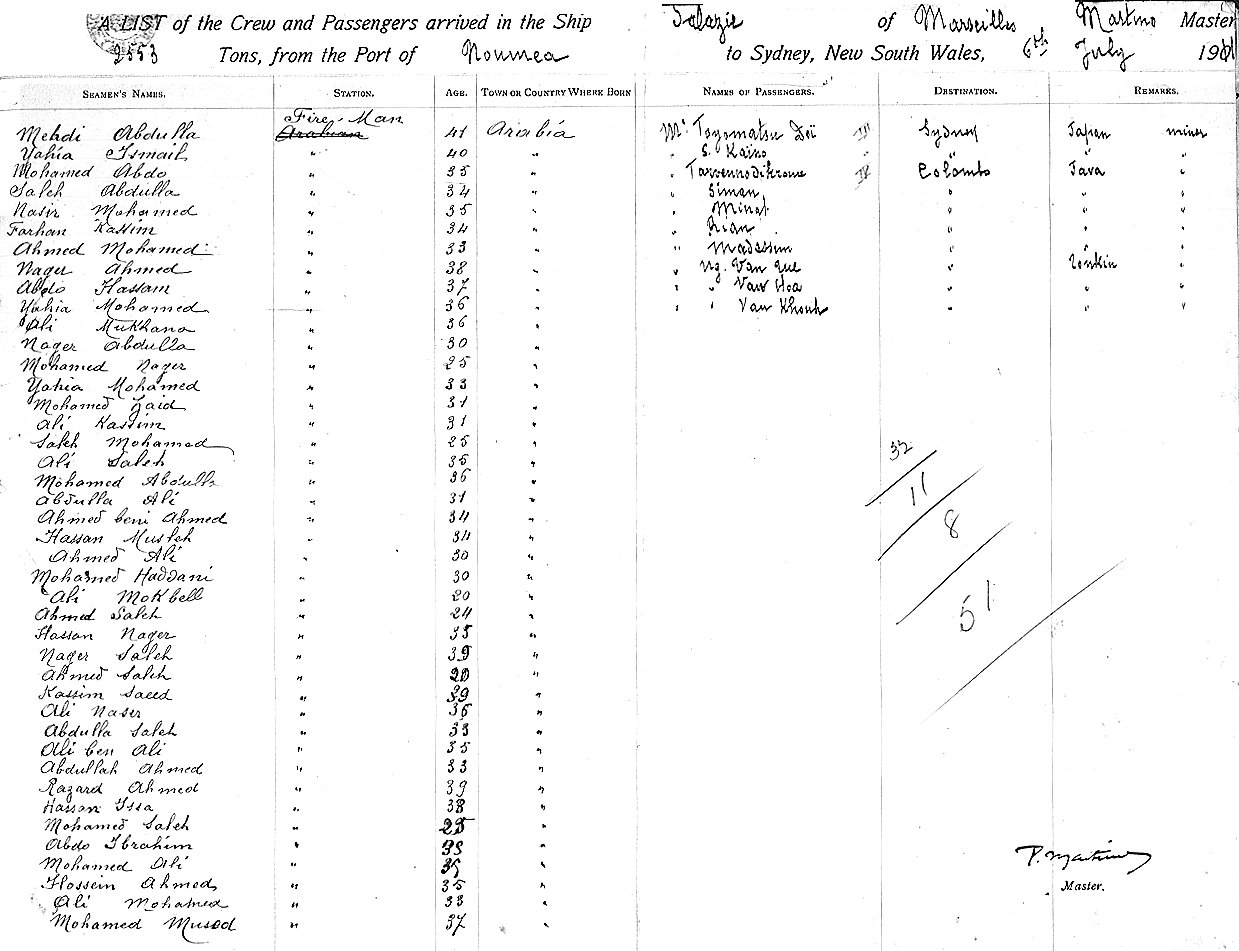 A LIST of the Crew and Passengers arrived in the Ship Salazie of Marseilles Martino Master
2553 Tons, from the Port of Noumea to Sydney, New South Wales, 6th July 1901
SEAMEN'S NAMES. STATION. AGE. TOWN OR COUNTRY WHERE BORN NAMES OF PASSENGERS. DESTINATION. REMARKS.
Fire-Man
Mehdi Abdulla Arabian 41 Arabia Mr Toyomatsu Deï III Sydney Japan miner
Yahia Ismail " 40 " " S. Kaïno " " " "
Mohamed Abdo " 35 " " IV Colombo Java "
Saleh Abdulla " 34 " " Siman " " "
Nasir Mohamed " 35 " " Minat " " "
Farhan Kassim " 34 " " Rian " " "
Ahmed Mohamed " 33 " " Madassim " " "
Nager Ahmed " 38 " " Ng. Van Que " Tonkin "
Abdo Hassam " 37 " " " Van Hoa " " "
Yahia Mohamed " 36 " " " Van Khouh " " "
Ali Mukhana " 36 "
Nager Abdulla " 30 "
Mohamed Nager " 25 "
Yahia Mohamed " 33 "
Mohamed Zaid " 31 "
Ali Kassim " 31 "
Saleh Mohamed " 25 "
Ali Saleh " 35 " 32
Mohamed Abdulla " 36 "
Abdulla Ali " 31 " 11
Ahmed beni Ahmed " 34 "
Hassan Musleh " 34 " 8
Ahmed Ali " 30 "
Mohamed Haddani " 30 "
Ali Mokbell " 20 "
Ahmed Saleh " 24 " 51
Hassan Nager " 35 "
Nager Saleh " 39 "
Ahmed Saleh " 20 "
Kassim Saeed " 39 "
Ali Naser " 36 "
Abdulla Saleh " 33 "
Ali ben Ali " 35 "
Abdullah Ahmed " 33 "
Razard Ahmed " 39 "
Hassan Issa " 38 "
Mohamed Saleh " 25 "
Abdo Ibrahim " 38 "
Mohamed Ali " 35 " P. Martino
Hossein Ahmed " 35 " Master.
Ali Mohamed " 33 "
Mohamed Mused " 37 "